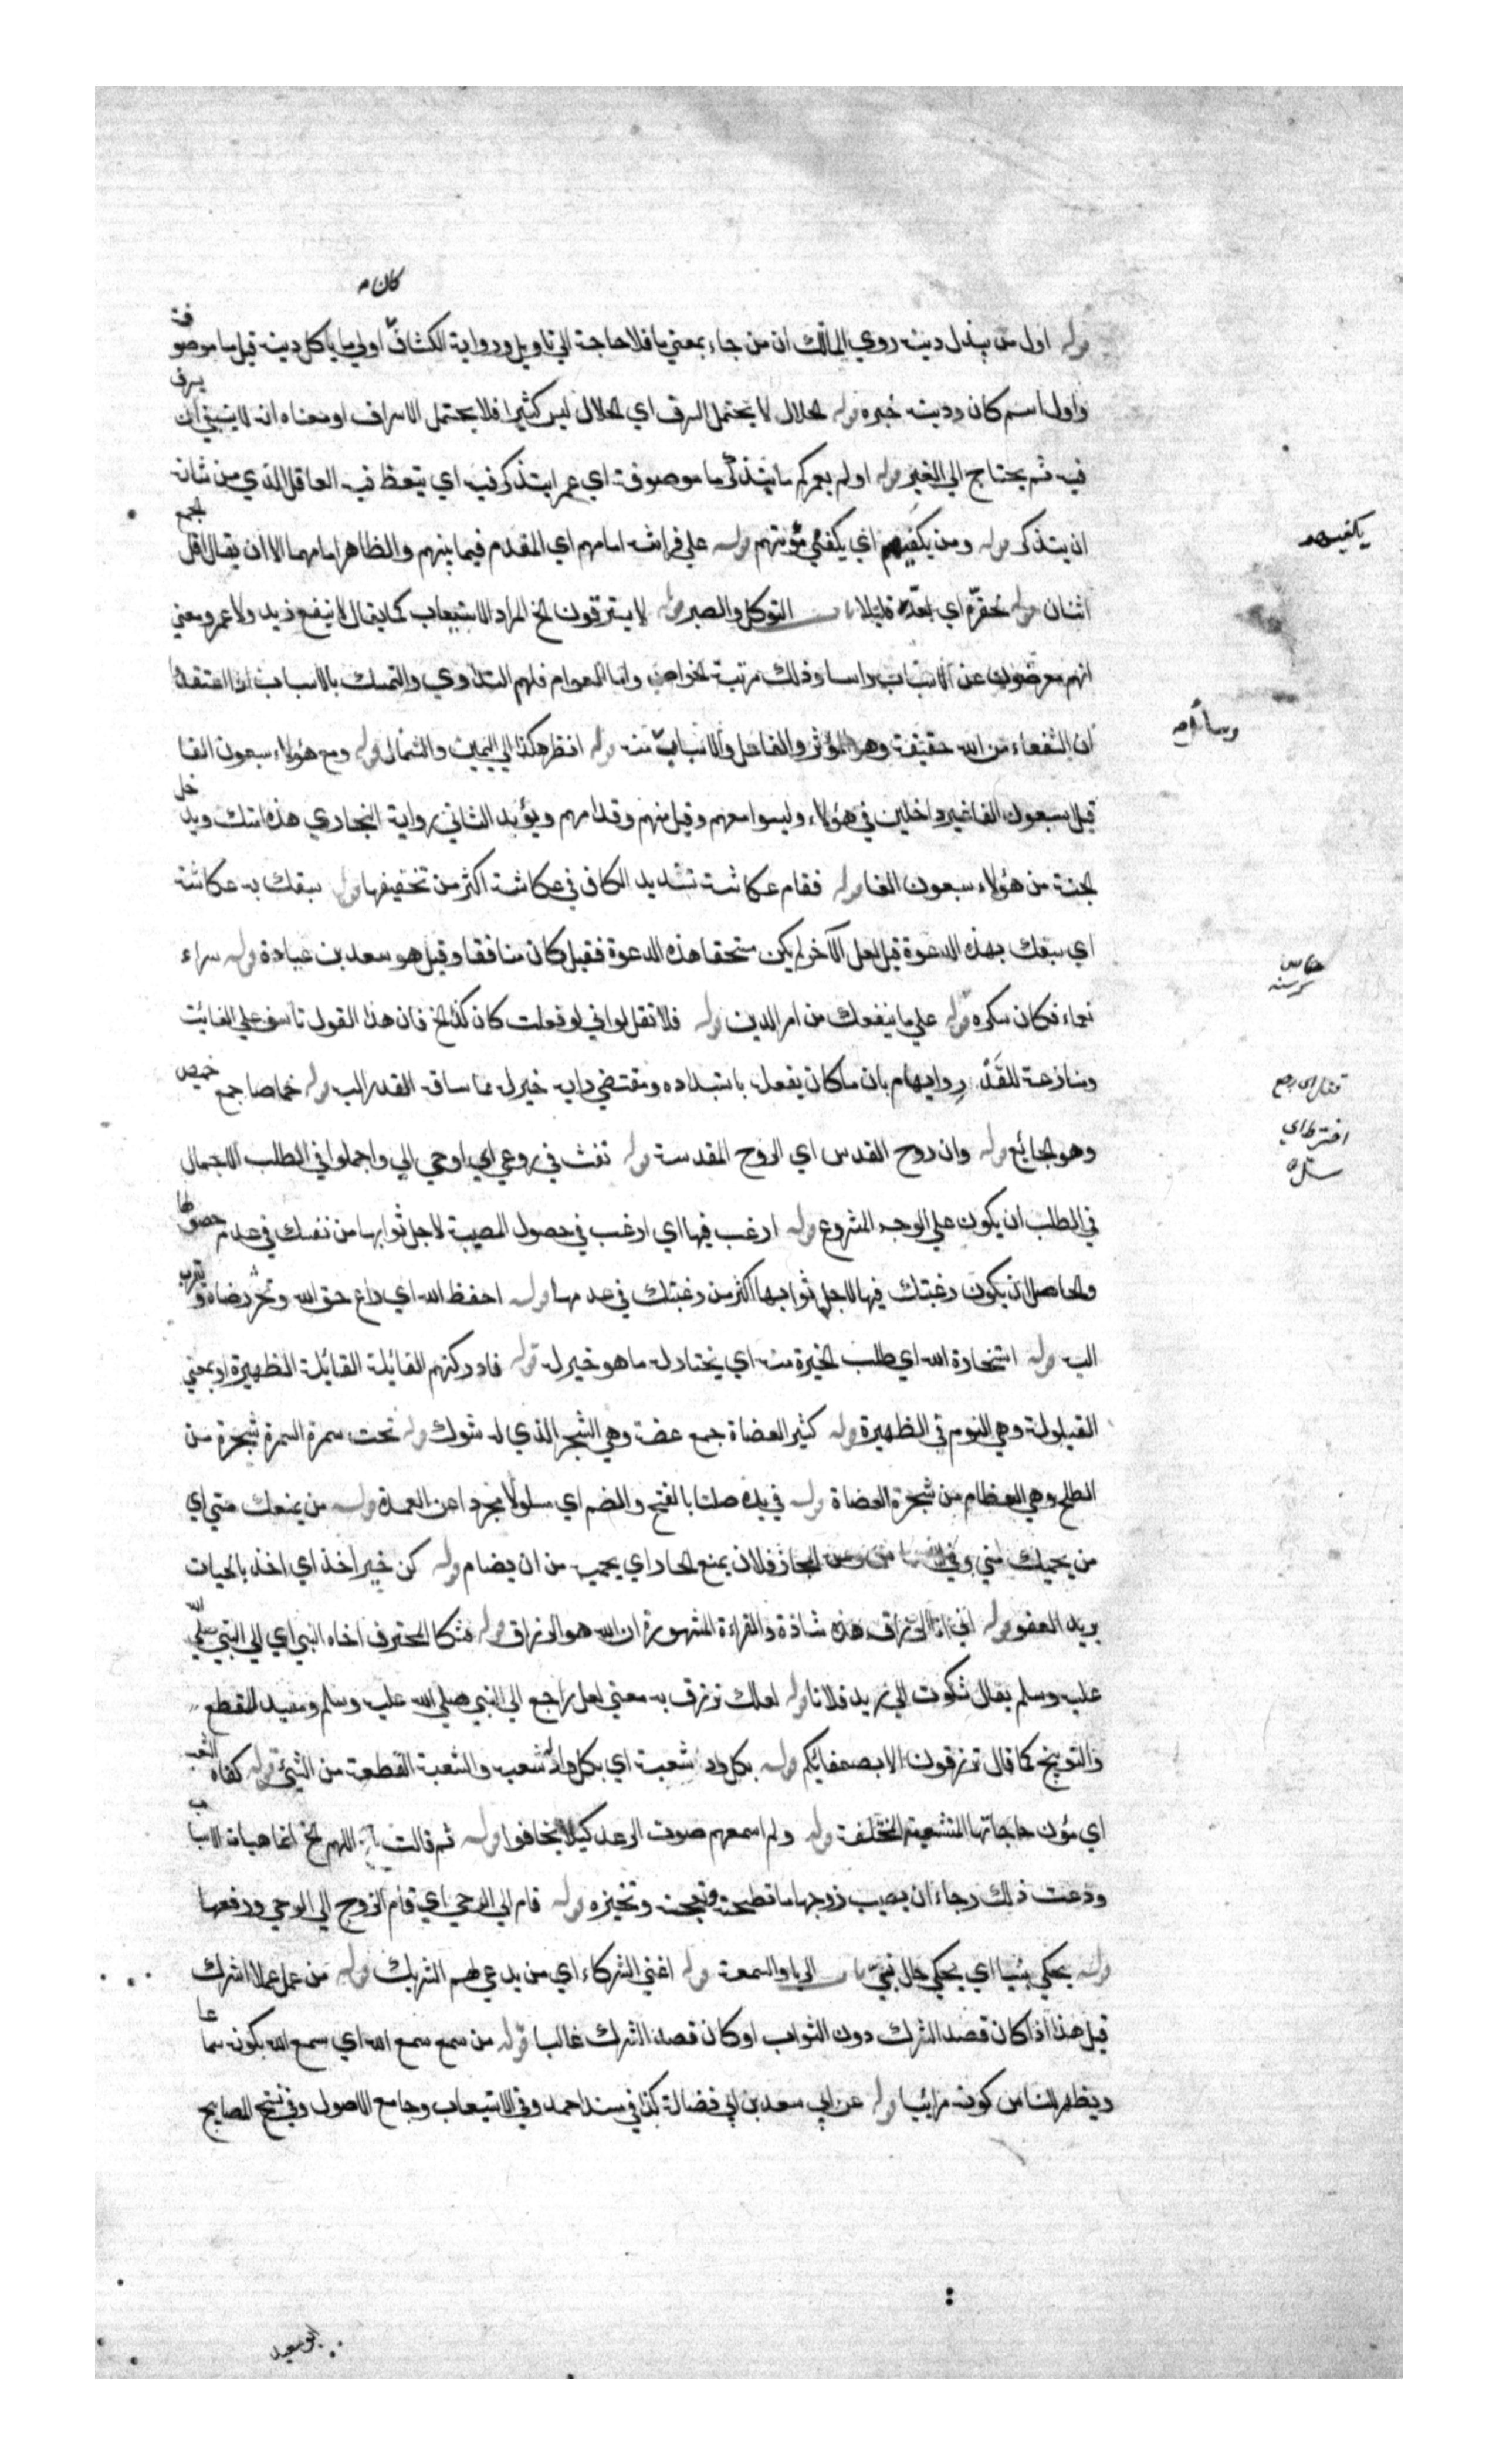 كان
قوله اول من يبذل دينه روي المالك ان من جاء بمعني ما فلا حاجة الي تاويل ورواية الكشاف اولي ما ياكل دينه قيل ما موصوفة
واول اسم كان ودينه خبره قوله الحلال لا يحتمل السرف اي الحلال ليس كثيرا فلا يحتمل الاسراف او معناه انه لا ينبغي ان يسرف
فيه ثم يحتاج الي الغير قوله اولم يعمركم ما يتذكر ما موصوفة اي عمرا يتذكر فيه اي يتعظ فيه العاقل الذي من شانه
ان يتذكر قوله ومن يكفيهم اي يكفي مؤنتهم قوله علي فراشه امامهم اي المقدم فيما بينهم والظاهر امامهما الا ان يقال اقل الجمع
يكفيهم
اثنان قوله تحقره اي تعده قليلا باب التوكل والصبر قوله لا يسترقون الخ المراد الاستيعاب كما يقال لا ينفع زيد ولا عمرو معني
انهم معرضون عن الاسباب راسا وذلك مرتبة الخواص واما العوام فلهم التداوي والتمسك بالاسباب اذا اعتقدوا
ان الشفاء من الله حقيقة وهو المؤثر والفاعل والاسباب منه قوله انظر هكذا الي اليمين والشمال قوله ومع هؤلاء سبعون الفا
قيل سبعون الفا غير داخلين في هؤلاء وليسوا معهم وقيل منهم وقدامهم ويؤيد الثاني رواية البخاري هذه امتك ويدخل
الجنة من هؤلاء سبعون الفا قوله فقام عكاشة تشديد الكاف في عكاشة اكثر من تخفيفها قوله سبقك به عكاشة
اي سبقك بهذه الدعوة قيل لعل الآخر لم يكن مستحقا هذه الدعوة فقيل كان منافقا وقيل هو سعد بن عبادة قوله سراء
نعماء فكان سكره قوله علي ما ينفعك من امر الدين قوله فلا تقل لو اني لو فعلت كان كذا الخ فان هذا القول تاسف علي الفائت
ومنازعة للقدر وايهام بان ما كان يفعله باستبداده ومقتضي رايه خير له مما ساقه القدر اليه قوله خماصا جمع خميص
وهو الجائع قوله وان روح القدس اي الروح المقدسة قوله نفث في روعي اي اوحي الي واجملوا في الطلب الاجمال
في الطلب ان يكون علي الوجه المشروع قوله ارغب فيها اي ارغب في حصول المصيبة لاجل ثوابها من نفسك في عدم حصولها
والحاصل ان يكون رغبتك فيها لاجل ثوابها اكثر من رغبتك في عدمها قوله احفظ الله اي راع حق الله وتحر رضاه وتقرب
اليه قوله استخارة الله اي طلب الخيرة منه اي يختار له ما هو خير له قوله فادركتهم القائلة القائلة الظهيرة او بمعني
القيلولة وهي النوم في الظهيرة قوله كثير العضاة جمع عضة وهي الشجر الذي له شوك قوله تحت سمرة السمرة شجرة من
الطلح وهي العظام من شجرة العضاة قوله في يده صلتا بالفتح والضم اي مسلولا مجردا عن الغمد قوله من يمنعك مني اي
من يحميك مني وفي المجاز فلان يمنع الجار اي يحميه من ان يضام قوله كن خير اخذ اي اخذ بالجنايات
يريد العفو قوله اني انا الرزاق هذه شاذة والقراءة المشهورة ان الله هو الرزاق قوله فشكا المحترف اخاه النبي اي الي النبي صلي الله
عليه وسلم يقال شكوت الي زيد فلانا قوله لعلك ترزق به معني لعل راجع الي النبي صلي الله عليه وسلم ومفيد للقطع
والتوبيخ كما قال ترزقون الا بضعفائكم قوله بكل واد شعبة اي بكل واد شعب والشعبة القطعة من الشئ قوله كفاه الشعب
اي مؤن حاجاتها المتشعبة المختلفة قوله ولم اسمعهم صوت الرعد كيلا يخافوا قوله ثم قالت اللهم الخ انما هيات الاسباب
ودعت ذلك رجاء ان يصيب زوجها ما تطحنه وتعجنه وتخبزه قوله قام الي الرحي اي قام الزوج الي الرحي ورفعها
قوله يحكي نبيا اي يحكي حال نبي باب الريا والسمعة قوله اغني الشركاء اي من يدعي لهم الشريك قوله من عمل عملا اشرك
قيل هذا اذا كان قصد الشرك دون الثواب او كان قصد الشرك غالبا قوله من سمع سمع الله اي سمع الله بكونه سماعا
ويظهر للناس كونه مرائيا قوله عن ابي سعد بن ابي فضالة كذا في مسند احمد وفي الاستيعاب وجامع الاصول وفي نسخ المصابيح
ابو سعيد